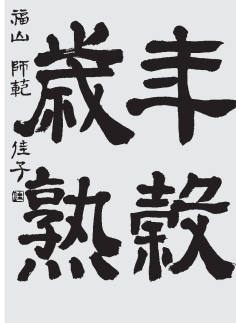 年穀
歳熟
福山 師範 佳子